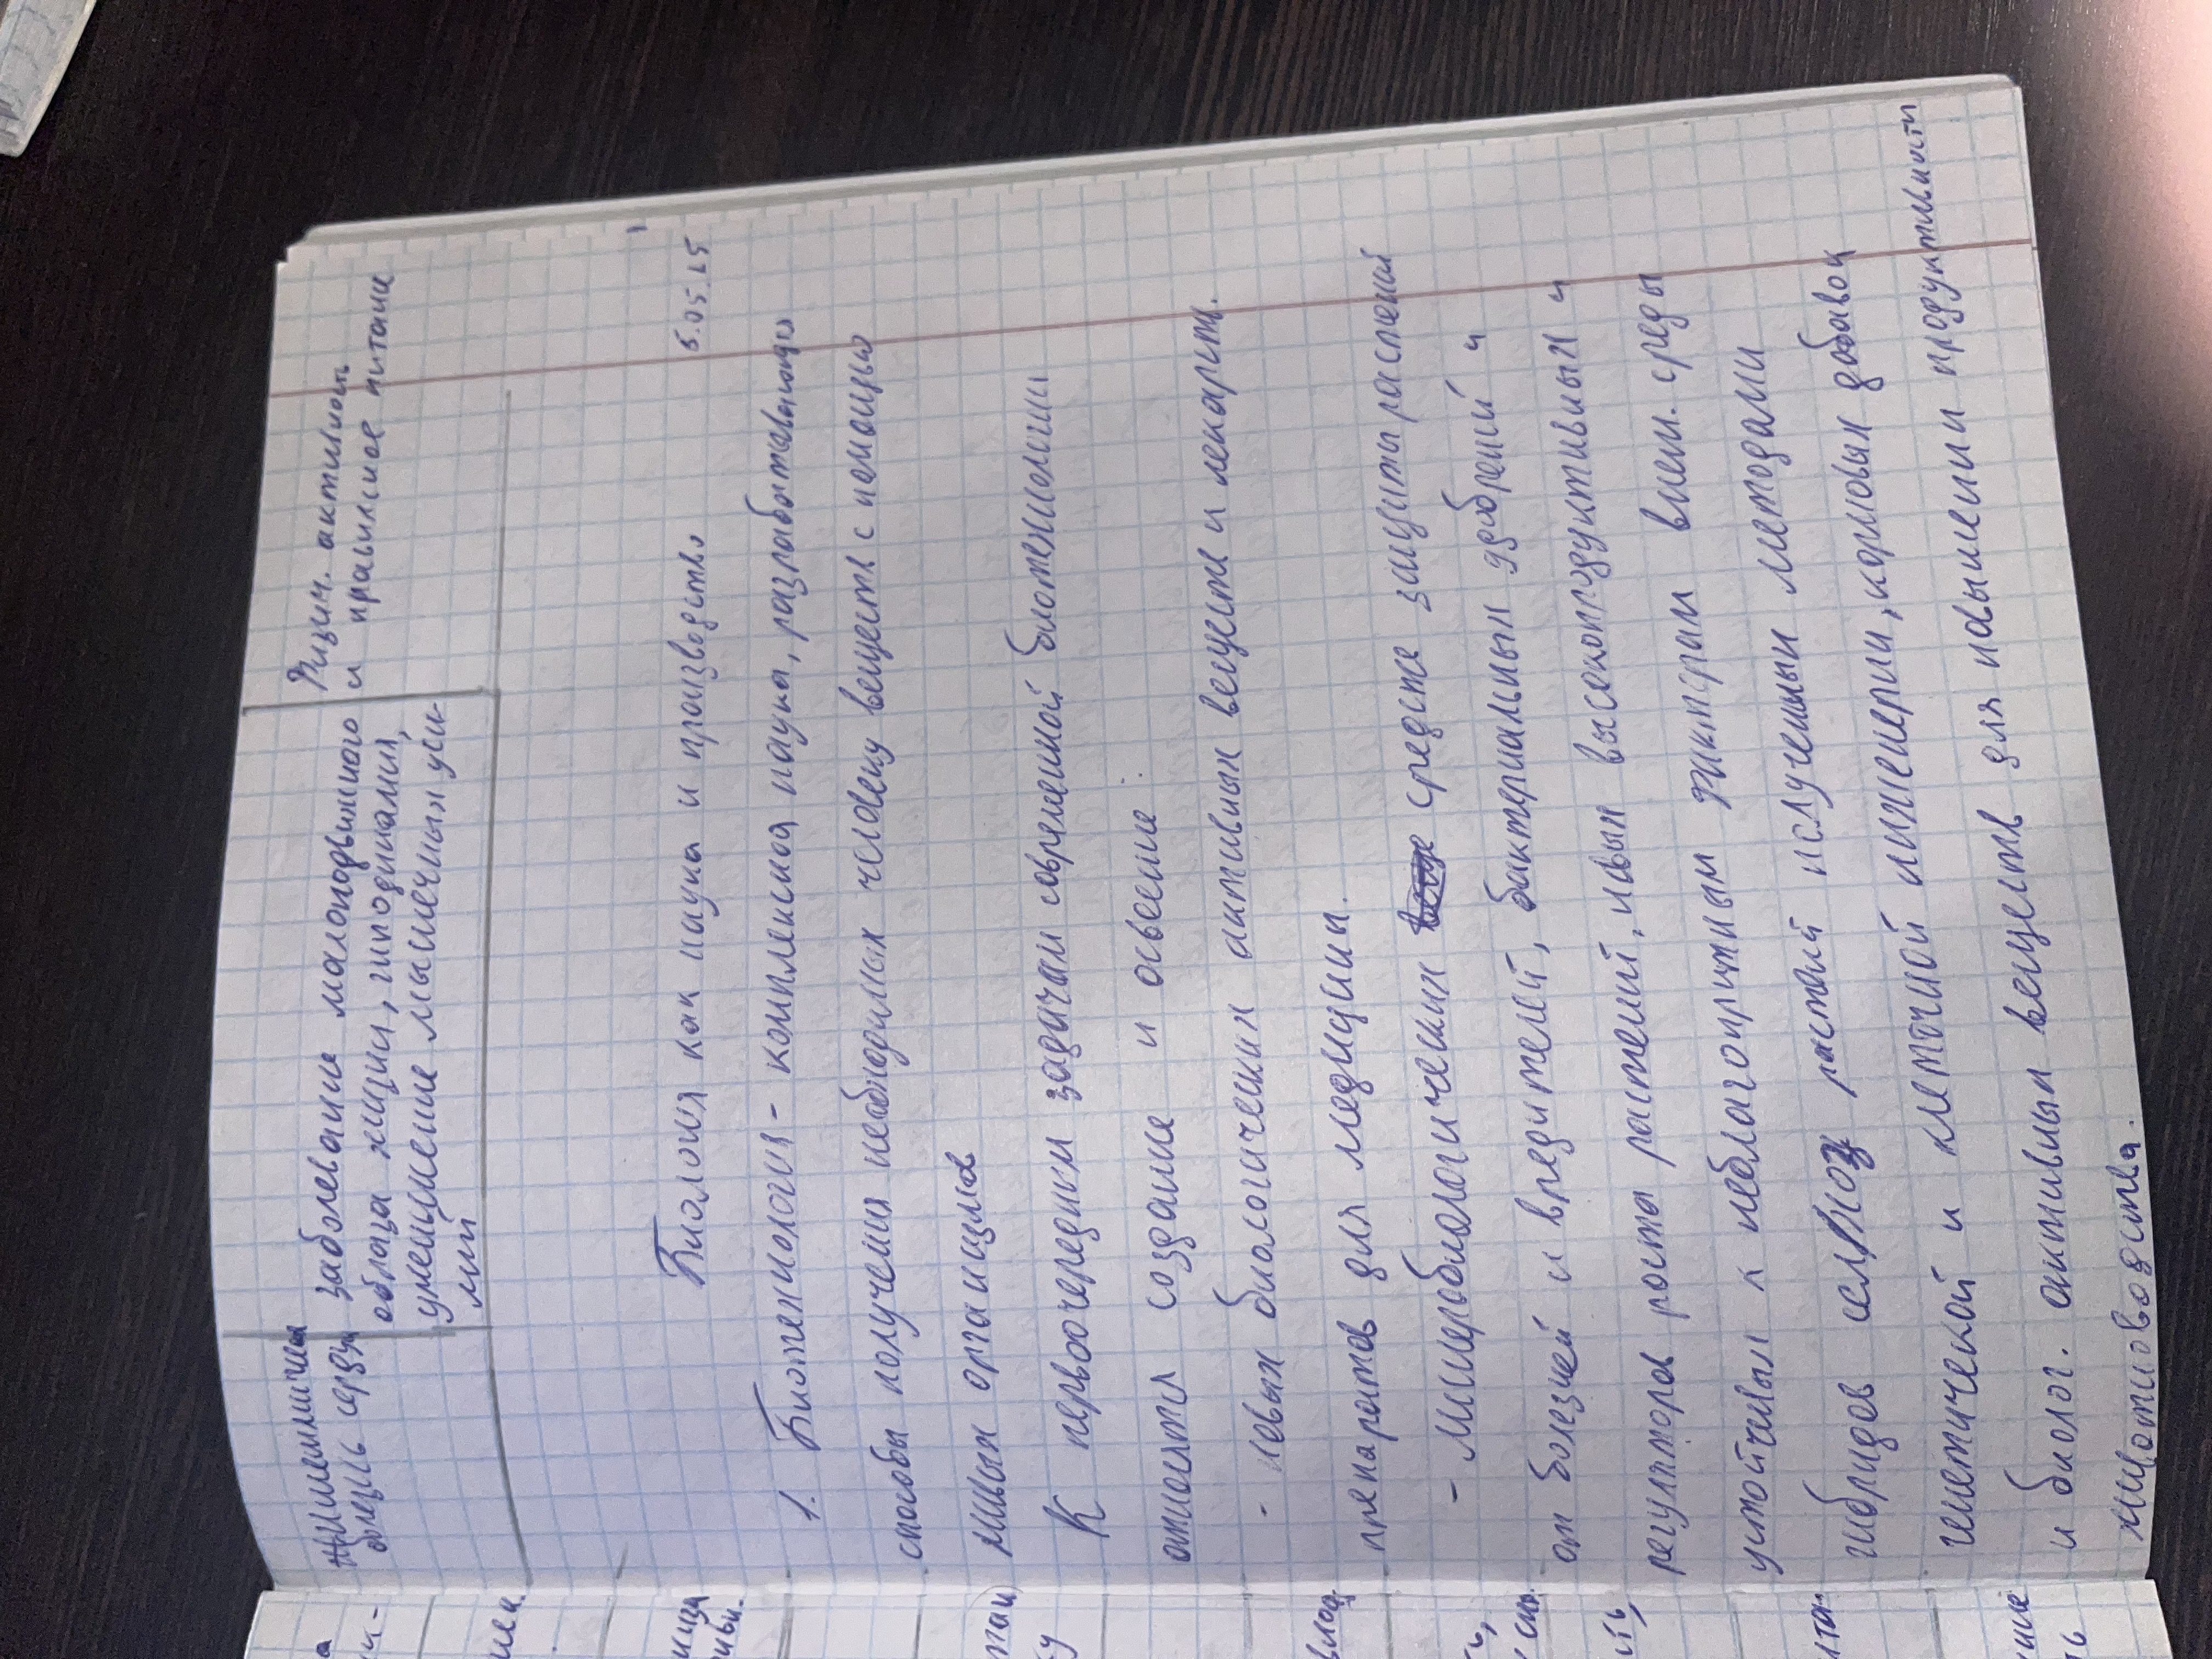 Ишемическая болезнь сердца
заболевание малоподвижного
образа жизни, гиподинамия,
уменьшение мышечных уси-
лий
Физич. активность
и правильное питание
6.05.25
Биология как наука и производство
1. Биотехнология - комплексная наука, разработавающая
способы получения необходимых человеку веществ с помощью
живых организмов
К первоочередным задачам современной биотехнологии
относятся создание и освоение:
- новых биологических активных веществ и лекарств.
препаратов для медицины.
- Микробиологических средств защиты растений
от болезней и вредителей, бактериальных удобрений и
регуляторов роста растений, новых высокопродуктивных и
устойчивых к неблагоприятным факторам внеш. среды
гибридов сельхоз растений полученных методами
генетической и клеточной инженерии, кормовых добавок
и биолог. активных веществ для повышении продуктивности
животноводства.